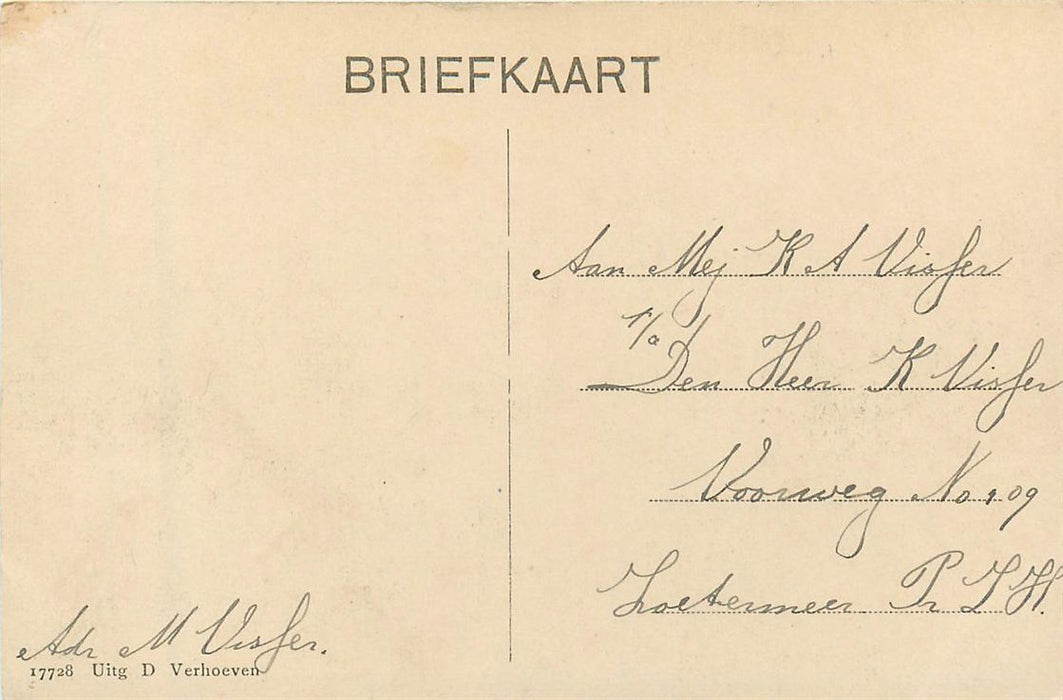 BRIEFKAART
Aan Mej K A Visser
p/a
Den Heer K Visser
Voorweg No 109
Zoetermeer Pr Z H.
Adr M Visser.
17728 Uitg D Verhoeven